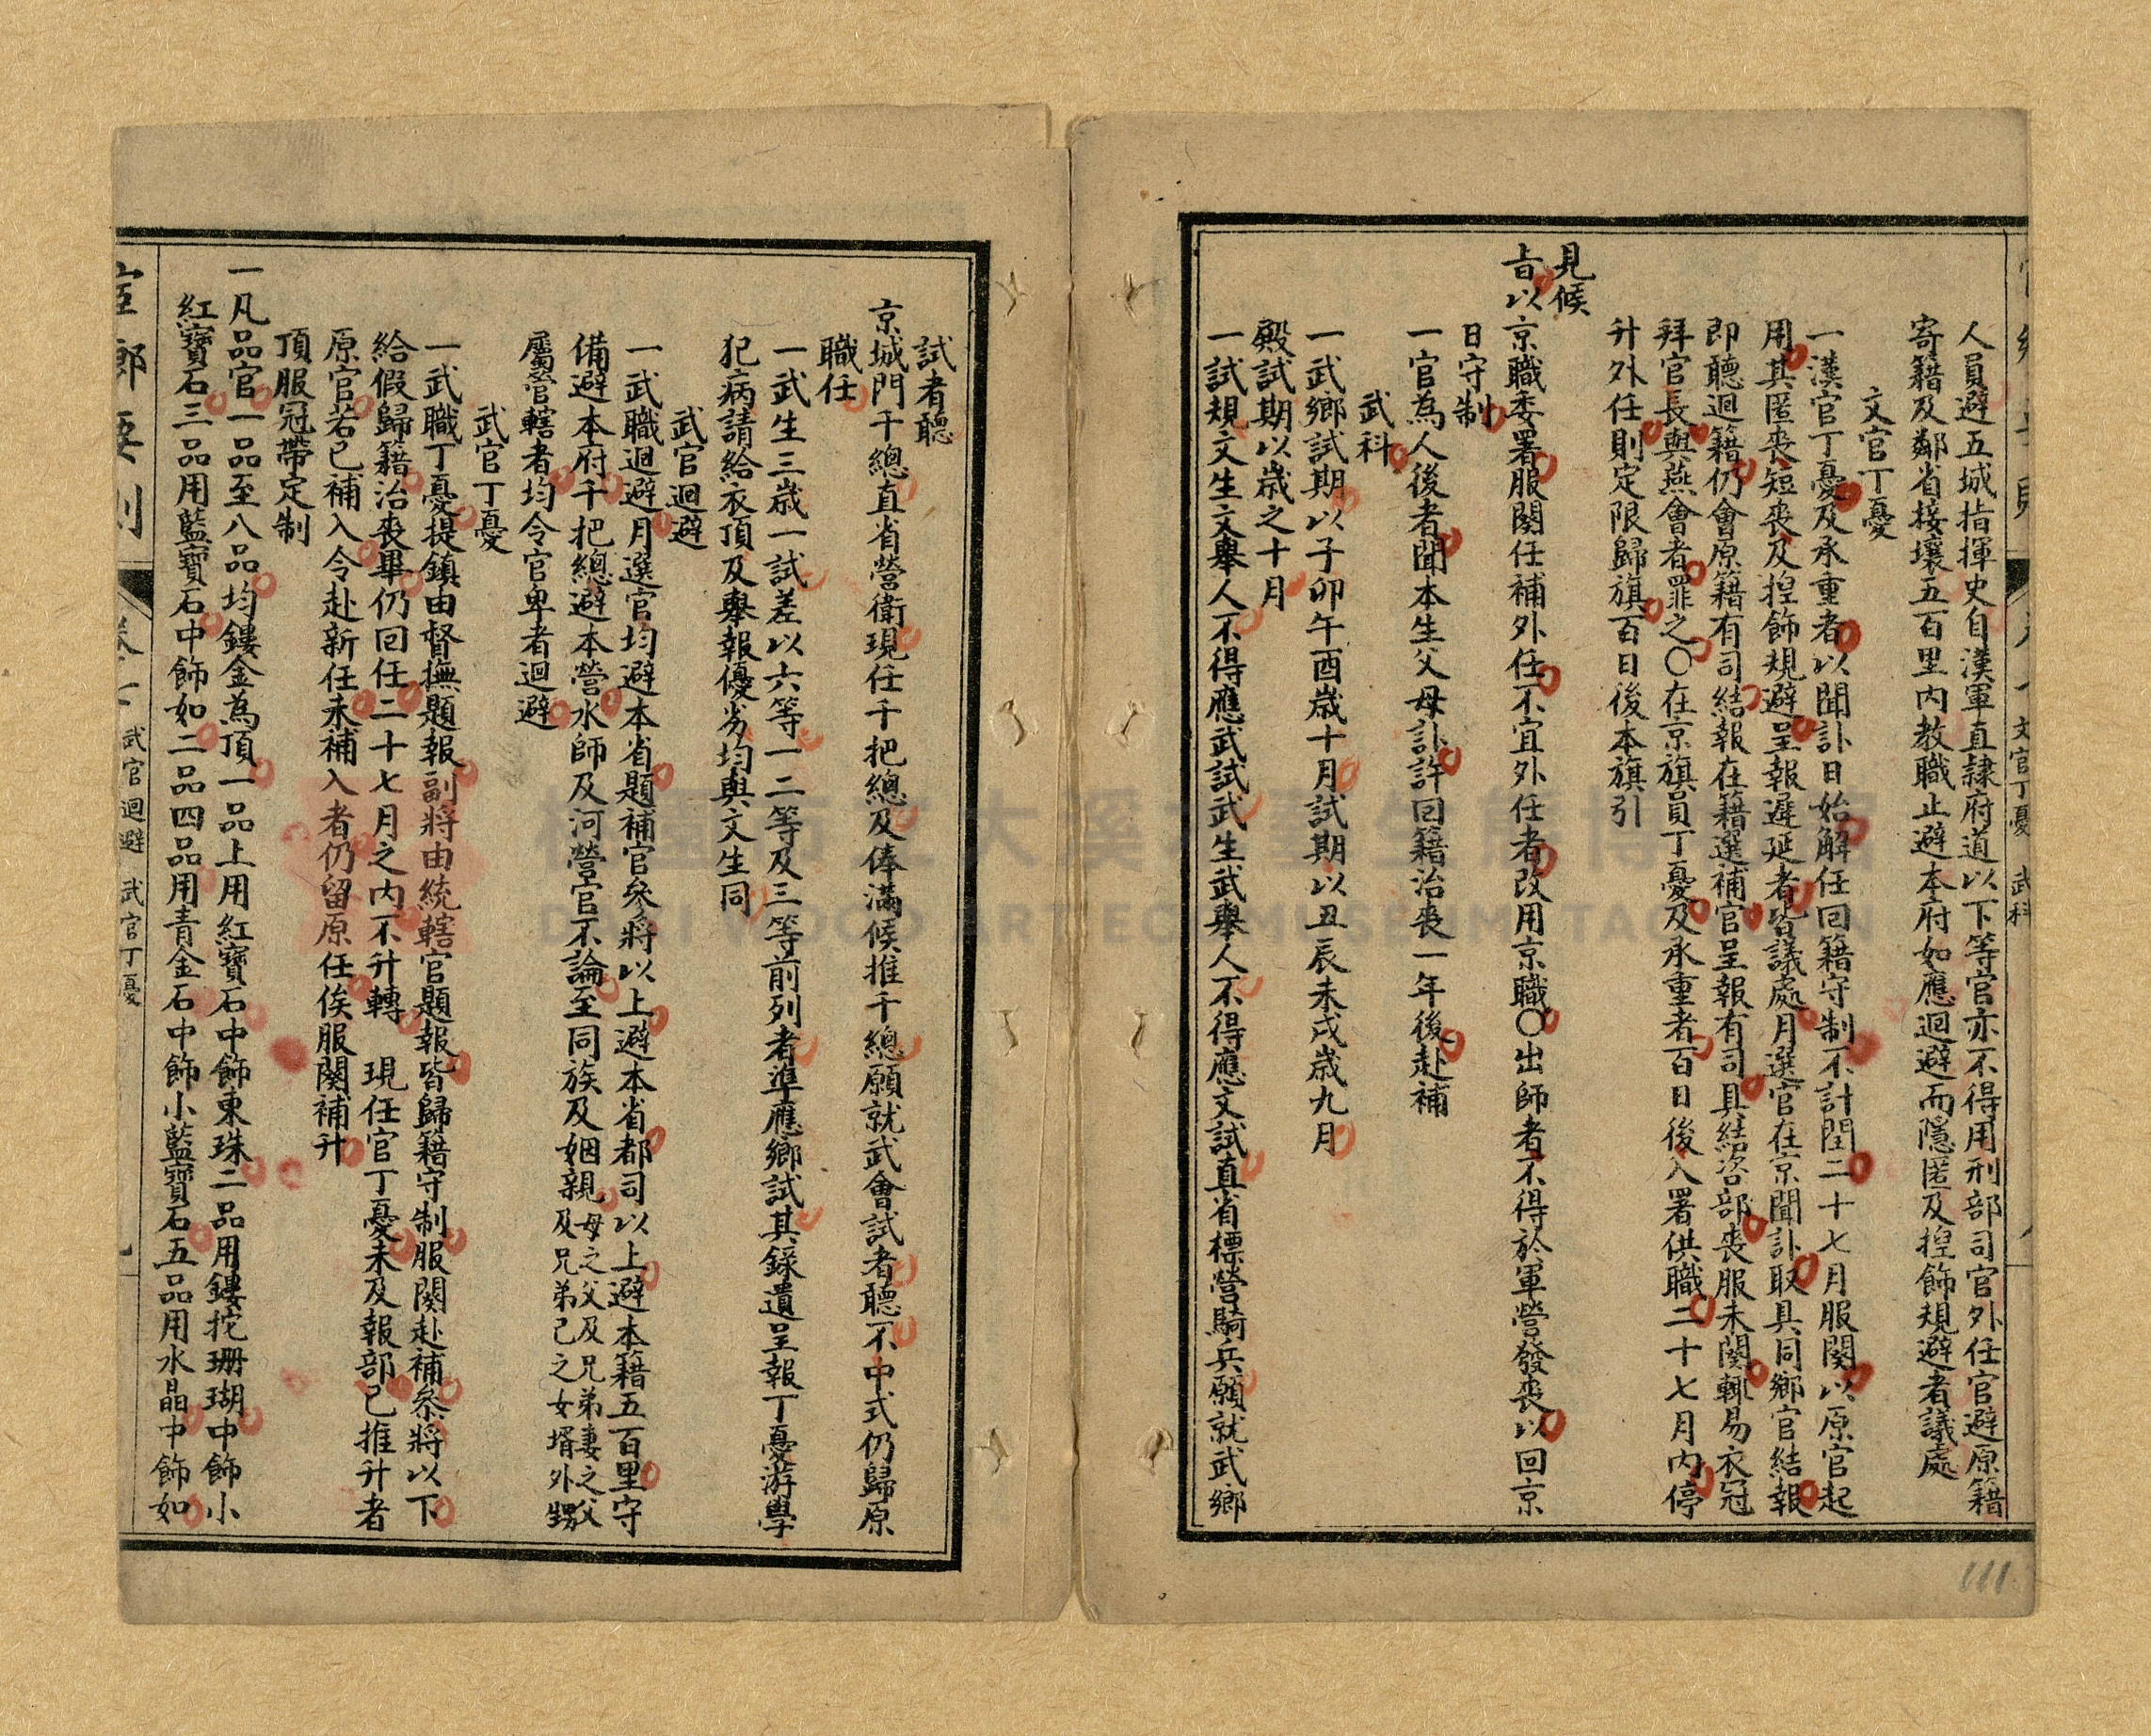 人員避五城指揮史自漢軍直隸府道以下等官亦不得用刑部司官外任官避原籍
寄籍及鄰省接壤五百里內教職止避本府如應迴避而隱匿及揑飾規避者議處
文官丁憂
一漢官丁憂及承重者以聞訃日始解任回籍守制不計閏二十七月服闋以原官起
用其匿喪短喪及揑飾規避呈報遲延者皆議處月選官在京聞訃取具同鄉官結報
即聽迴籍仍會原籍有司結報在籍選補官呈報有司具結咨部喪服未闋輒易衣冠
拜官長與燕會者罪之〇在京旗員丁憂及承重者百日後入署供職二十七月內停
升外任則定限歸旗百日後本旗引
見候
旨以京職委署服闋任補外任不宜外任者改用京職〇出師者不得於軍營發喪以回京
日守制
一官為人後者聞本生父母訃許回籍治喪一年後赴補
武科
一武鄉試期以子卯午酉歲十月試期以丑辰未戌歲九月
殿試期以歲之十月
一試規文生文舉人不得應武試武生武舉人不得應文試直省標營騎兵願就武鄉
文官丁憂 武科
111
試者聽
京城門千總直省營衛現任千把總及俸滿候推千總願就武會試者聽不中式仍歸原
職任
一武生三歲一試差以六等一二等及三等前列者準應鄉試其錄遺呈報丁憂游學
犯病請給衣頂及舉報優劣均與文生同
武官迴避
一武職迴避月選官均避本省題補官參將以上避本省都司以上避本籍五百里守
備避本府千把總避本營水師及河營官不論至同族及姻親母之父及兄弟妻之父及兄弟己之女婿外甥
屬營轄者均令官卑者迴避
武官丁憂
一武職丁憂提鎮由督撫題報副將由統轄官題報皆歸籍守制服闋赴補叅將以下
給假歸籍治喪畢仍回任二十七月之內不升轉 現任官丁憂未及報部已推升者
原官若已補入令赴新任未補入者仍留原任俟服闋補升
頂服冠帶定制
一凡品官一品至八品均鏤金為頂一品上用紅寶石中飾東珠二品用鏤挖珊瑚中飾小
紅寶石三品用藍寶石中飾如二品四品用青金石中飾小藍寶石五品用水晶中飾如
宦鄉要則 武官迴避 武官丁憂
DAXI WOOD ART ECOMUSEUM, TAOYUAN